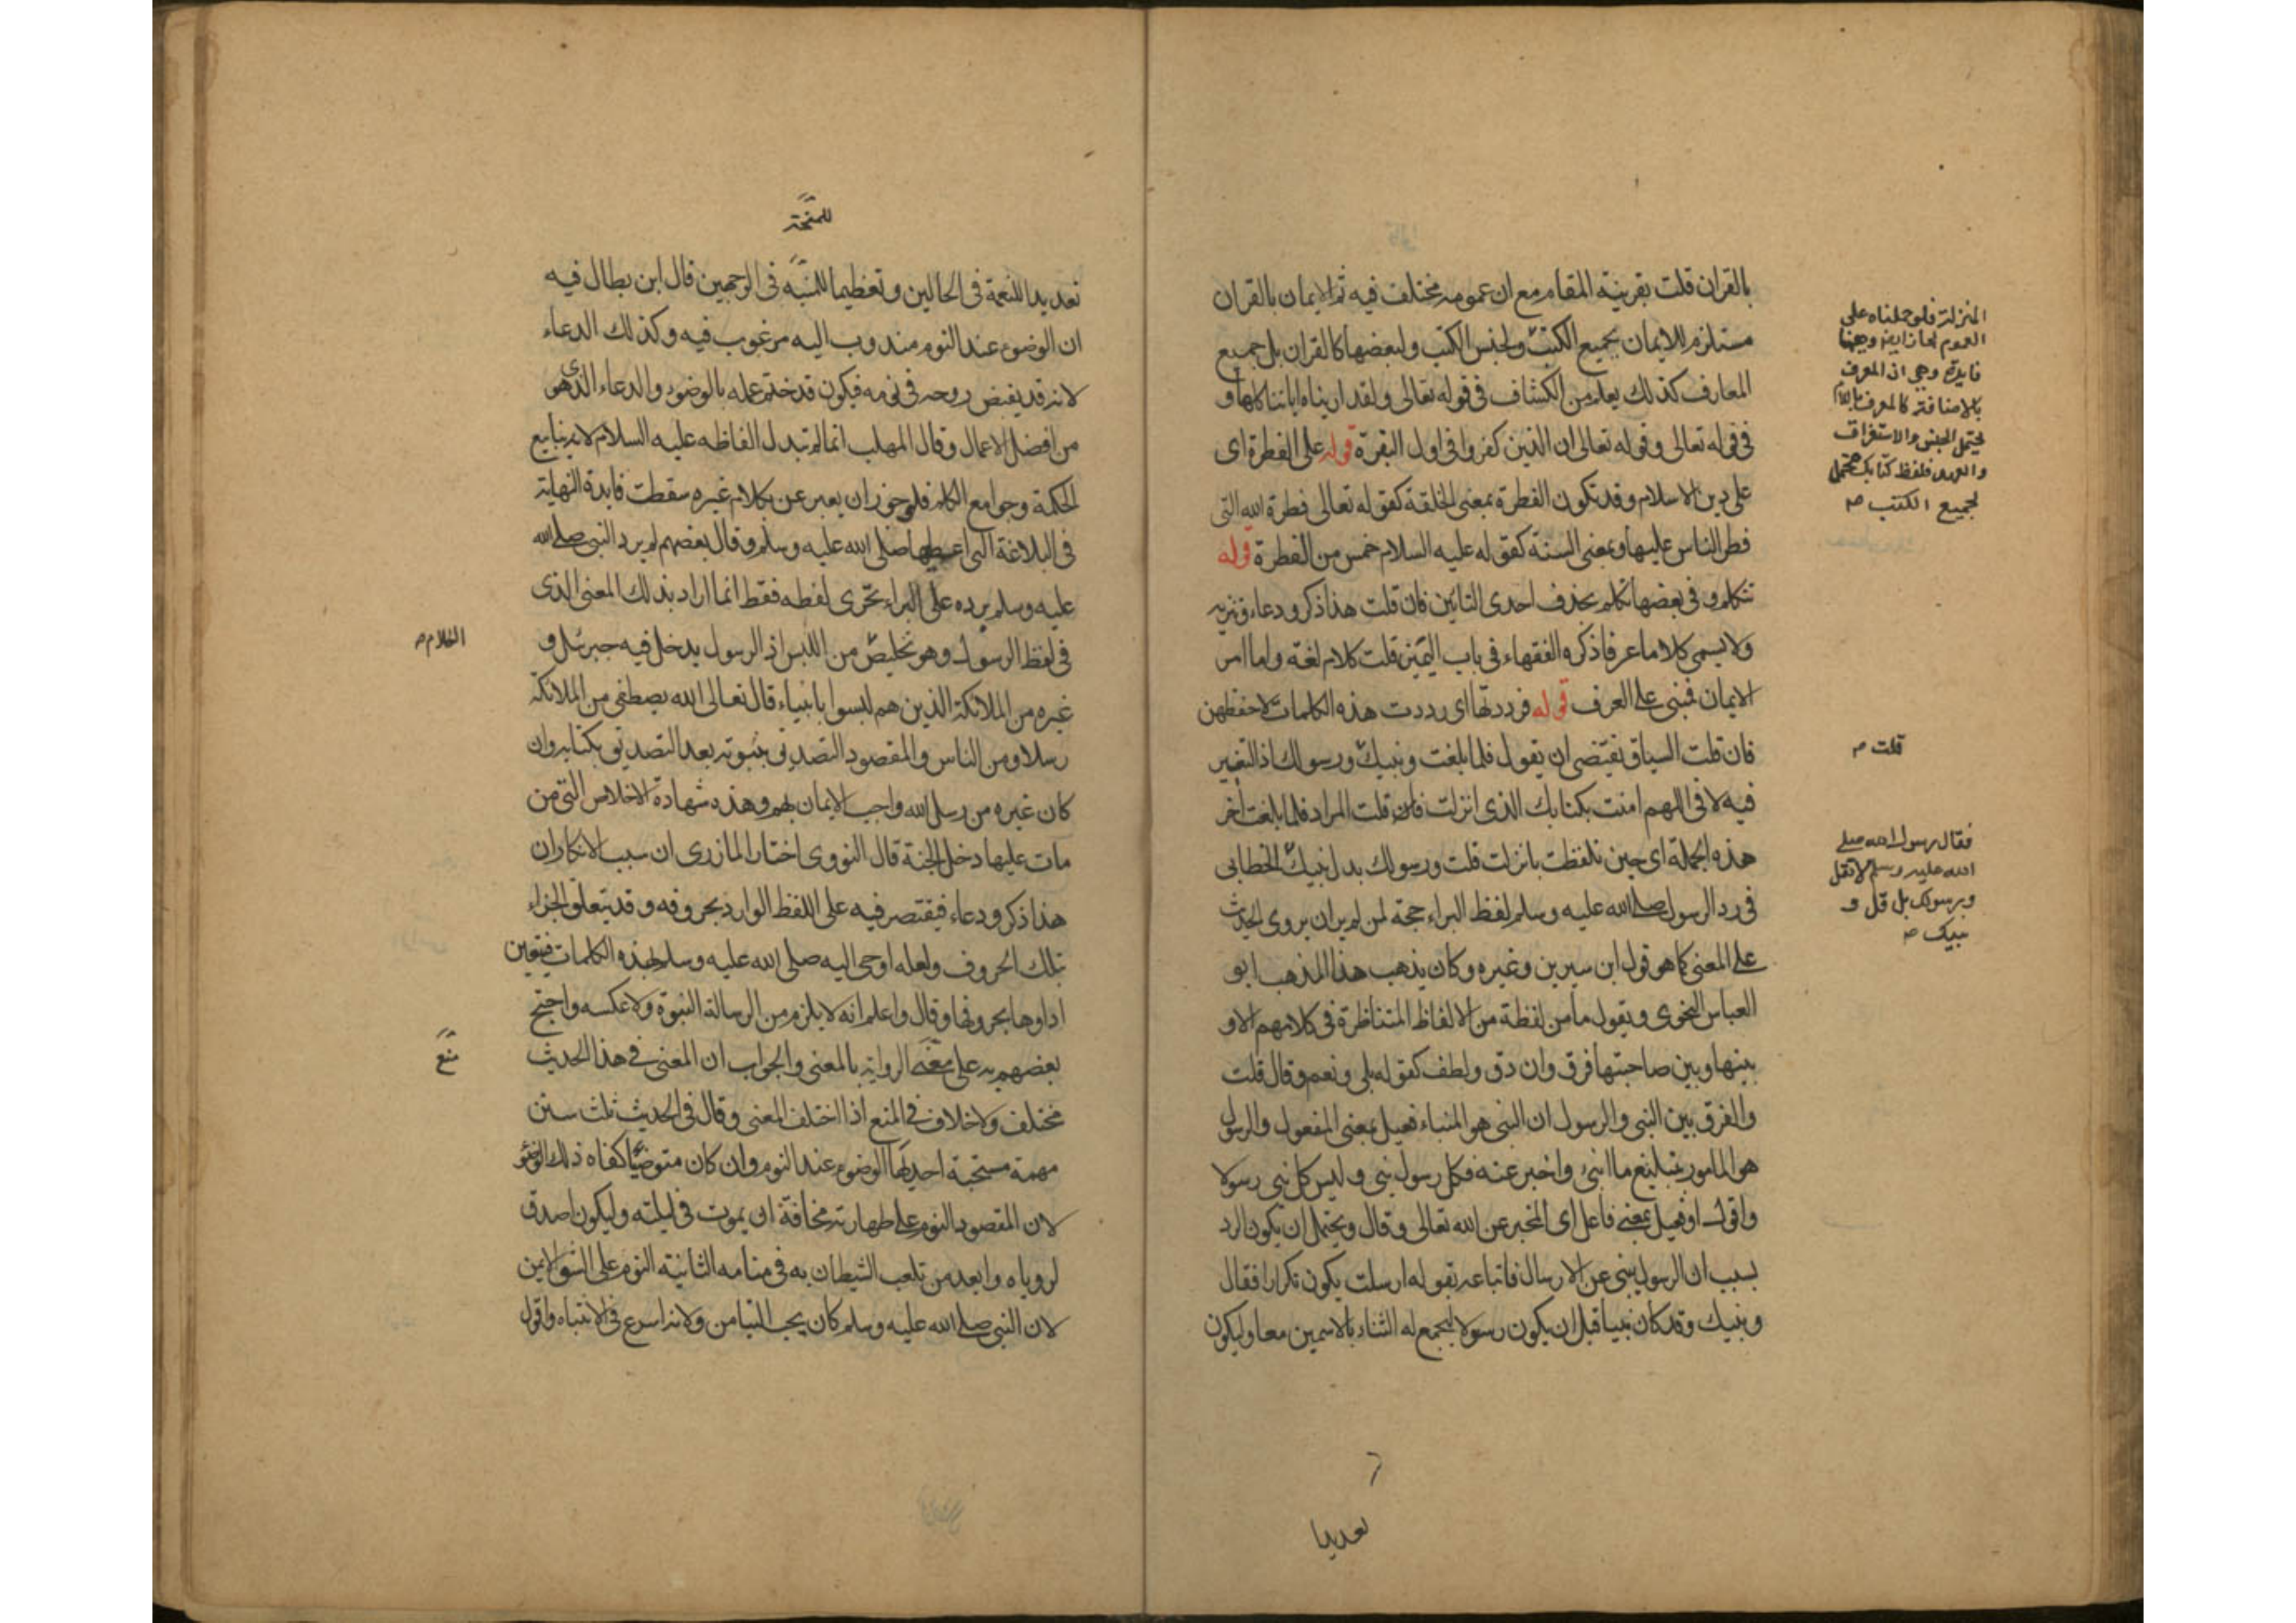 بالقران قلت بقرينة المقام مع ان عمومه مختلف فيه ثم الايمان بالقران
مستلزم للايمان بجميع الكتب ولجنس الكتب ولبعضها كالقران بل جميع
المعارف كذلك يعلم من الكشاف في قوله تعالى ولقد اريناه اياتنا كلها و
في قوله تعالى وقوله تعالى ان الذين كفروا في اول البقرة قوله على الفطرة اى
على دين الاسلام وقد تكون الفطرة بمعنى الخلقة كقوله تعالى فطرة الله التى
فطر الناس عليها وبمعنى السنة كقوله عليه السلام خمس من الفطرة قوله
تتكلم وفي بعضها تكلم بحذف احدى التائين فان قلت هذا ذكر ودعاء
ولا يسمى كلاما عرفا ذكره الفقهاء في باب اليمين قلت كلام لغة واما امر
الايمان فمبنى على العرف قوله فرددتها اى رددت هذه الكلمات لاحفظهن
فان قلت السياق يقتضى ان يقول فلما بلغت ونبيك ورسولك اذ التغيير
فيه لا في اللهم امنت بكتابك الذى انزلت قلت المراد فلما بلغت اخر
هذه الجملة اى حين تلفظت بانزلت قلت ورسولك بدل نبيك الخطابى
في رد الرسول صلى الله عليه وسلم لفظ البراء حجة لمن لم ير ان يروى الحديث
على المعنى كما هو قول ابن سيرين وغيره وكان يذهب هذا المذهب ابو
العباس النحوى ويقول ما من لفظة من الالفاظ المتناظرة في كلامهم الا و
بينها وبين صاحبتها فرق وان دق ولطف كقوله بلى ونعم وقال قلت
والفرق بين النبى والرسول ان النبى هو المنباء فعيل بمعنى المفعول والرسول
هو المامور بتبليغ ما انبئ واخبر عنه فكل رسول نبى وليس كل نبى رسولا
واقول او فعيل بمعنى فاعل اى المخبر عن الله تعالى وقال ويحتمل ان يكون الرد
بسبب ان الرسول ينبى عن الارسال فاتباعه بقوله ارسلت يكون تكرارا فقال
ونبيك وقد كان نبيا قبل ان يكون رسولا ليجمع له الثناء بالاسمين معا وليكون
المنزلة فلو حملناه على
العموم لجاز ايضا وههنا
فايدة وهى ان المعرف
بالاضافة كالمعرف باللام
يحتمل الجنس والاستغراق
والعهد فلفظ كتابك محتمل
لجميع الكتب
قلت
فقال رسول الله صلى
الله عليه وسلم لا تقل
ورسولك بل قل و
نبيك
تعديدا
تعديدا للنعمة في الحالين وتعظيما للمنة في الوجهين قال ابن بطال فيه
ان الوضوء عند النوم مندوب اليه مرغوب فيه وكذلك الدعاء
لانه قد يقبض روحه في نومه فيكون قد ختم عمله بالوضوء والدعاء الذى هو
من افضل الاعمال وقال المهلب انما لم تبدل الفاظه عليه السلام لانه ينابيع
الحكمة وجوامع الكلم فلو جوز ان يعبر عن بكلام غيره سقطت فايدة النهاية
في البلاغة التى اعطيها صلى الله عليه وسلم وقال بعضهم لم يرد النبى صلى الله
عليه وسلم برده على البراء تحرى لفظه فقط انما اراد بذلك المعنى الذى
في لفظ الرسول وهو تخليص من اللبس اذ الرسول يدخل فيه جبرئل و
غيره من الملائكة الذين هم ليسوا بانبياء قال تعالى الله يصطفى من الملائكة
رسلا ومن الناس والمقصود التصديق بنبوته بعد التصديق بكتابه وان
كان غيره من رسل الله واجب الايمان بهم وهذه شهادة الاخلاص التى من
مات عليها دخل الجنة قال النووى اختار المازرى ان سبب الانكار ان
هذا ذكر ودعاء فيقتصر فيه على اللفظ الوارد بحروفه وقد يتعلق الجزاء
بتلك الحروف ولعله اوحى اليه صلى الله عليه وسلم بهذه الكلمات فيتعين
اداوها بحروفها وقال واعلم انه لا يلزم من الرسالة النبوة ولا عكسه واحتج
بعضهم به على منع الرواية بالمعنى والجواب ان المعنى في هذا الحديث
مختلف ولا خلاف في المنع اذا اختلف المعنى وقال في الحديث ثلث سنن
مهمة مستحبة احديها الوضوء عند النوم وان كان متوضيا كفاه ذلك الوضوء
لان المقصود النوم على طهارته مخافة ان يموت في ليلته وليكون اصدق
لروياه وابعد من تلعب الشيطان به في منامه الثانية النوم على الشق الايمن
لان النبى صلى الله عليه وسلم كان يحب التيامن ولانه اسرع في الانتباه واقول
الكلام
منع